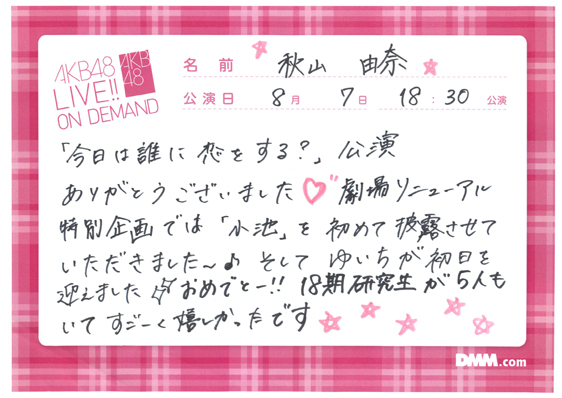 AKB48
LIVE!!
ON DEMAND
AKB
48
名前 秋山 由奈
公演日 8月 7日 18:30 公演
「今日は誰に恋をする?」公演
ありがとうございました♡" 劇場リニューアル
特別企画では「小池」を初めて披露させて
いただきました〜♪ そして ゆいちが初日を
迎えました おめでとー!! 18期研究生が5人も
いて すごーく嬉しかったです
DMM.com